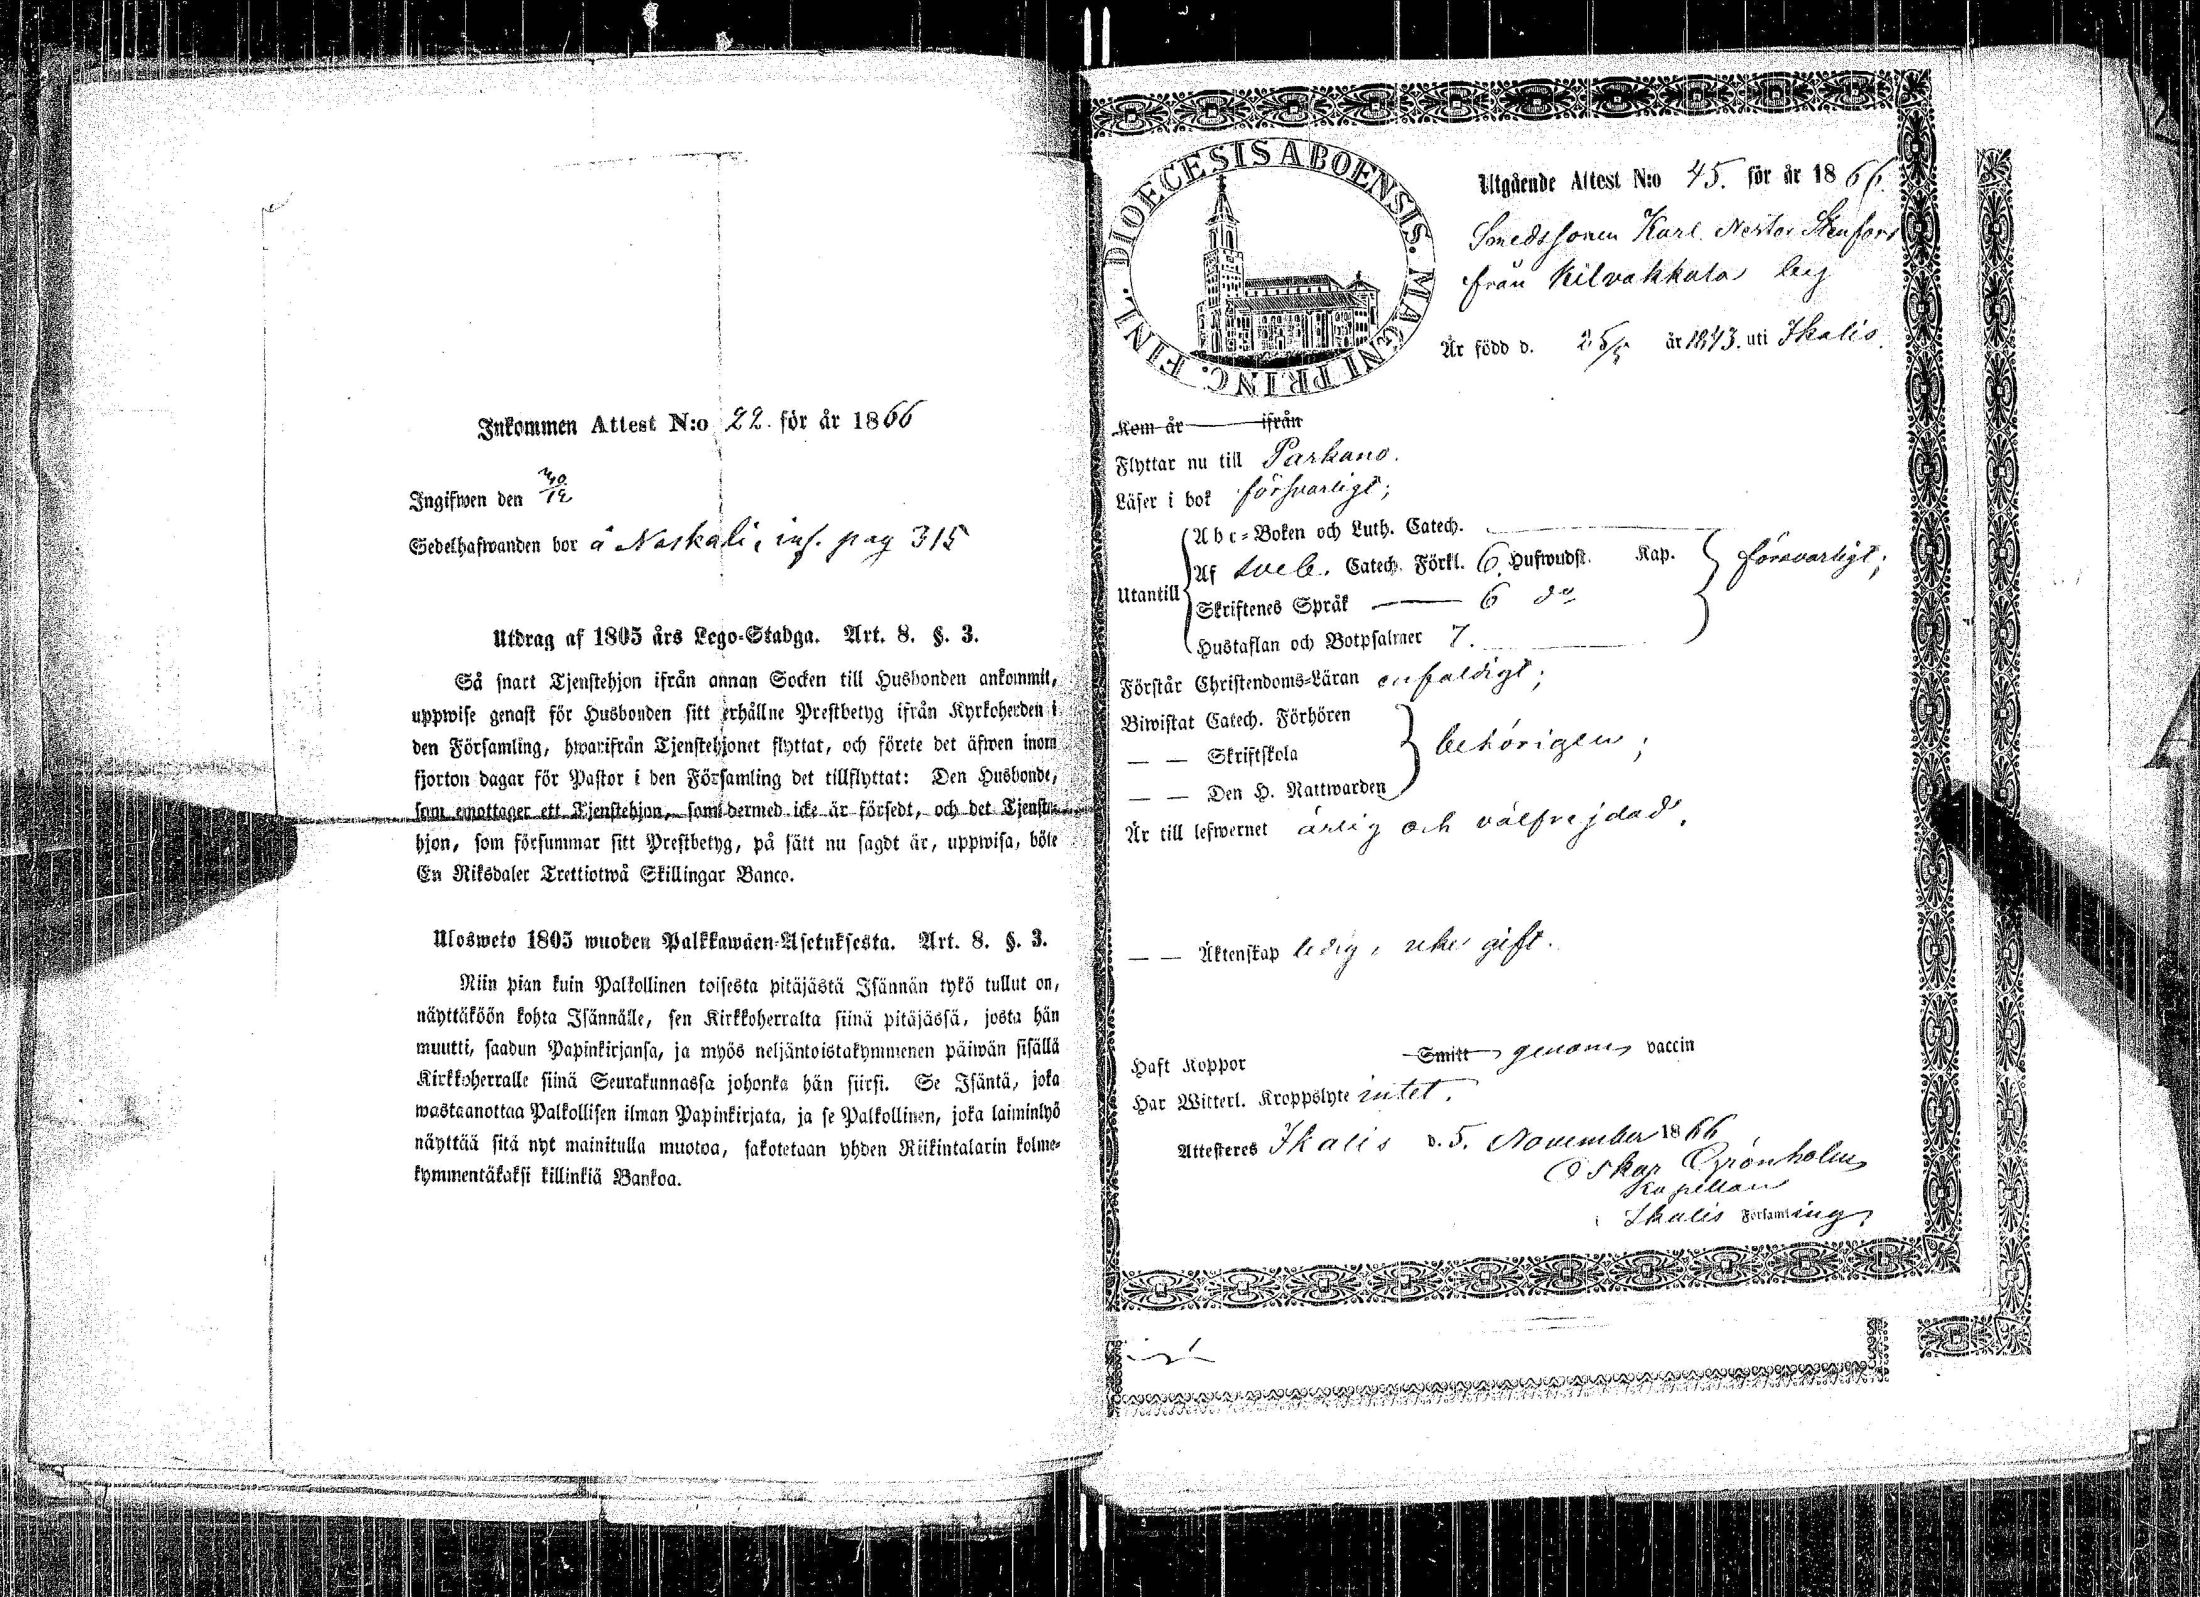 Inkommen Attest N:o 22. för år 1866
Ingifwen den 30/12
Sedelhafwanden bor å Naskali, inf. pag 315
Utdrag af 1805 års Lego-Stadga. Art. 8. §. 3.
Så snart Tjenstehjon ifrån annan Socken till Husbonden ankommit,
uppwise genast för Husbonden sitt erhållne Prestbetyg ifrån Kyrkoherden i
den Församling, hwarifrån Tjenstehjonet flyttat, och förete det äfwen inom
fjorton dagar för Pastor i den Församling det tillflyttat: Den Husbonde,
som emottager ett Tjenstehjon, som dermed icke är försedt, och det Tjenste-
hjon, som försummar sitt Prestbetyg, på sätt nu sagdt är, uppwisa, böte
En Riksdaler Trettiotwå Skillingar Banco.
Ulosweto 1805 wuoden Palkkawäen-Asetuksesta. Art. 8. §. 3.
Niin pian kuin Palkollinen toisesta pitäjästä Isännän tykö tullut on,
näyttäköön kohta Isännälle, sen Kirkkoherralta siinä pitäjässä, josta hän
muutti, saadun Papinkirjansa, ja myös neljäntoistakymmenen päiwän sisällä
Kirkkoherralle siinä Seurakunnassa johonka hän siirsi. Se Isäntä, joka
wastaanottaa Palkollisen ilman Papinkirjata, ja se Palkollinen, joka laiminlyö
näyttää sitä nyt mainitulla muotoa, sakotetaan yhden Riikintalarin kolme-
kymmentäkaksi killinkiä Bankoa.
DIOECESIS ABOENSIS. MAGNI PRINC. FINL.
Utgående Attest N:o 45. för år 1866.
Smedssonen Karl Nestor Stenfors
från Kilvakkala by
Är född d. 25/5 år 1843. uti Ikalis.
Kom år ifrån
Flyttar nu till Parkano.
Läser i bok försvarligt;
Abc-Boken och Luth. Catech.
Utantill Af Sveb. Catech. Förkl. 6. Hufwudst. Kap. försvarligt;
Skriftenes Språk 6 do
Hustaflan och Botpsalmer 7.
Förstår Christendoms-Läran enfaldigt;
Biwistat Catech. Förhören
— — Skriftskola behörigen;
— — Den H. Nattwarden
Är till lefwernet ärlig och välfrejdad.
— — Äktenskap ledig, gift.
Haft Koppor Smitt genom vaccin
Har Witterl. Kroppslyte intet.
Attesteres Ikalis d. 5. November 1866
Oskar Grönholm
Kapellan
i Ikalis Församling.